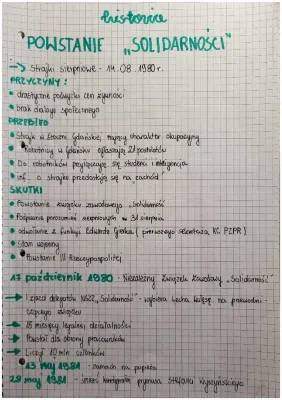 historia
POWSTANIE „SOLIDARNOŚCI"
→ Strajki sierpniowe - 14.08.1980r.
PRZYCZYNY:
• drastyczne podwyżki cen żywności
• brak dialogu społecznego
PRZEBIEG
• Strajk w Stoczni Gdańskiej mający charakter okupacyjny
• Robotnicy w Gdańsku ogłaszają 21 postulatów
• Do robotników przyłączają się studenci i inteligencja
• inf. o strajku przedostają się na „zachód"
SKUTKI
• Powstanie związku zawodowego „Solidarność"
• Podpisanie porozumień sierpniowych w 31 sierpnia
• odwołanie z funkcji Edwarda Gierka (pierwszego sekretarza KC PZPR)
• Stan wojenny
• Powstanie III Rzeczypospolitej
17 październik 1980 - Niezależny Związek Zawodowy „Solidarność"
→ I zjazd delegatów NSZZ „Solidarność" - wybiera Lecha Wałęsę na przewodniczącego związku
→ 15 miesięcy legalnej działalności
→ Powstał dla obrony pracowników
→ Liczył 10 mln członków
13 maj 1981 - zamach na papieża
28 maj 1981 - śmierć kardynała prymasa Stefana Wyszyńskiego